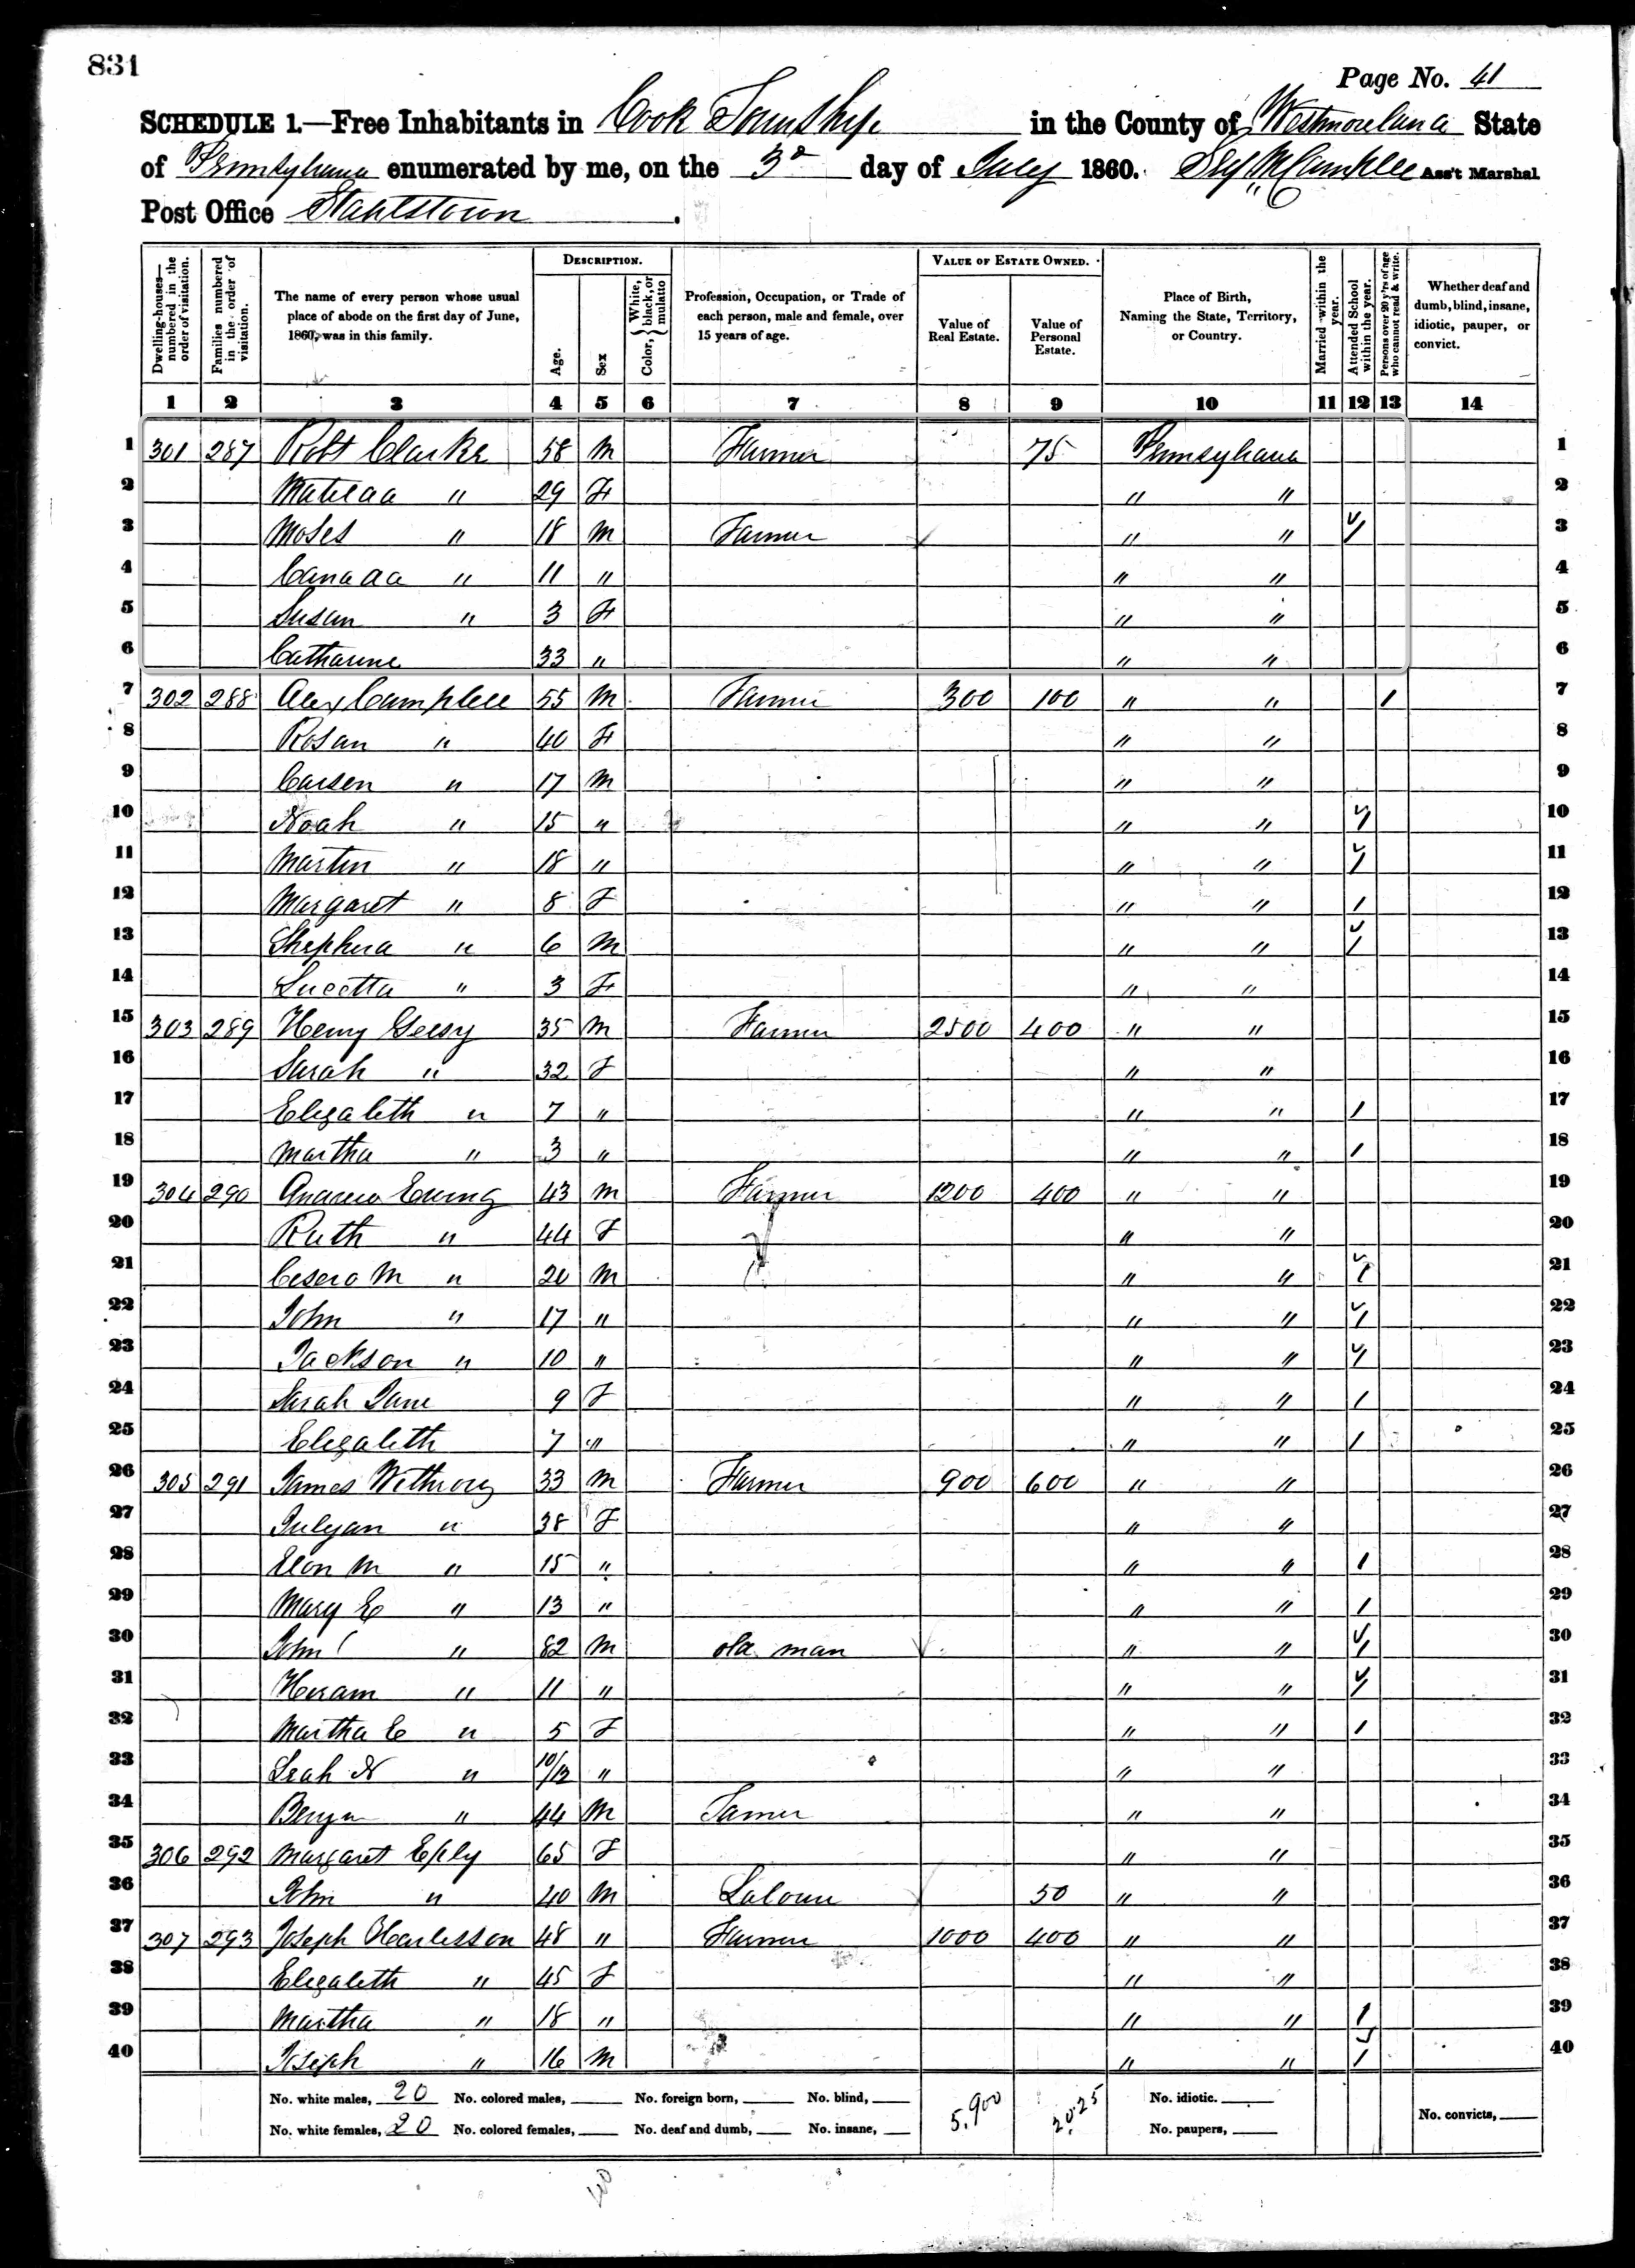 831
Page No. 41
SCHEDULE 1.—Free Inhabitants in Cook Township in the County of Westmoreland State
of Pennsylvania enumerated by me, on the 3d day of July 1860. Ass't Marshal.
Post Office Stahlstown.
DESCRIPTION. VALUE OF ESTATE OWNED.
Dwelling-houses—numbered in the order of visitation. Families numbered in the order of visitation. The name of every person whose usual place of abode on the first day of June, 1860, was in this family. Age. Sex Color, White, black, or mulatto Profession, Occupation, or Trade of each person, male and female, over 15 years of age. Value of Real Estate. Value of Personal Estate. Place of Birth, Naming the State, Territory, or Country. Married within the year. Attended School within the year. Persons over 20 y'rs of age who cannot read & write. Whether deaf and dumb, blind, insane, idiotic, pauper, or convict.
1 2 3 4 5 6 7 8 9 10 11 12 13 14
1 301 287 Robt Clarke 58 M Farmer 75 Pennsylvania 1
2 Matilda " 29 F " " 2
3 Moses " 18 M Farmer " " / 3
4 Canada " 11 " " " 4
5 Susan " 3 F " " 5
6 Catharine 33 " " " 6
7 302 288 Alex Campbell 55 M Farmer 300 100 " " 1 7
8 Rosan " 40 F " " 8
9 Carsen " 17 M " " 9
10 Noah " 15 " " " / 10
11 Martin " 18 " " " / 11
12 Margaret " 8 F " " / 12
13 Shepherd " 6 M " " / 13
14 Lucetta " 3 F " " 14
15 303 289 Henry 35 M Farmer 2500 400 " " 15
16 Sarah " 32 F " " 16
17 Elizabeth " 7 " " " / 17
18 Martha " 3 " " " / 18
19 304 290 Andrew Ewing 43 M Farmer 1200 400 " " 19
20 Ruth " 44 F " " 20
21 Cesero M " 20 M " " / 21
22 John " 17 " " " / 22
23 Jackson " 10 " " " / 23
24 Sarah Jane 9 F " " / 24
25 Elizabeth 7 " " " / 25
26 305 291 James Withrow 33 M Farmer 900 600 " " 26
27 Julyan " 38 F " " 27
28 M " 15 " " " / 28
29 Mary E " 13 " " " / 29
30 John " 82 M old man " " / 30
31 Hiram " 11 " " " / 31
32 Martha E " 5 F " " / 32
33 Leah N " 10/12 " " " 33
34 Benja " 44 M Farmer " " 34
35 306 292 Margaret Eply 65 F " " 35
36 John " 40 M Laborer 50 " " 36
37 307 293 Joseph 48 " Farmer 1000 400 " " 37
38 Elizabeth " 45 F " " 38
39 Martha " 18 " " " / 39
40 Joseph " 16 M " " / 40
No. white males, 20 No. colored males, No. foreign born, No. blind, 5,900 2025 No. idiotic.
No. white females, 20 No. colored females, No. deaf and dumb, No. insane, No. paupers, No. convicts,
40